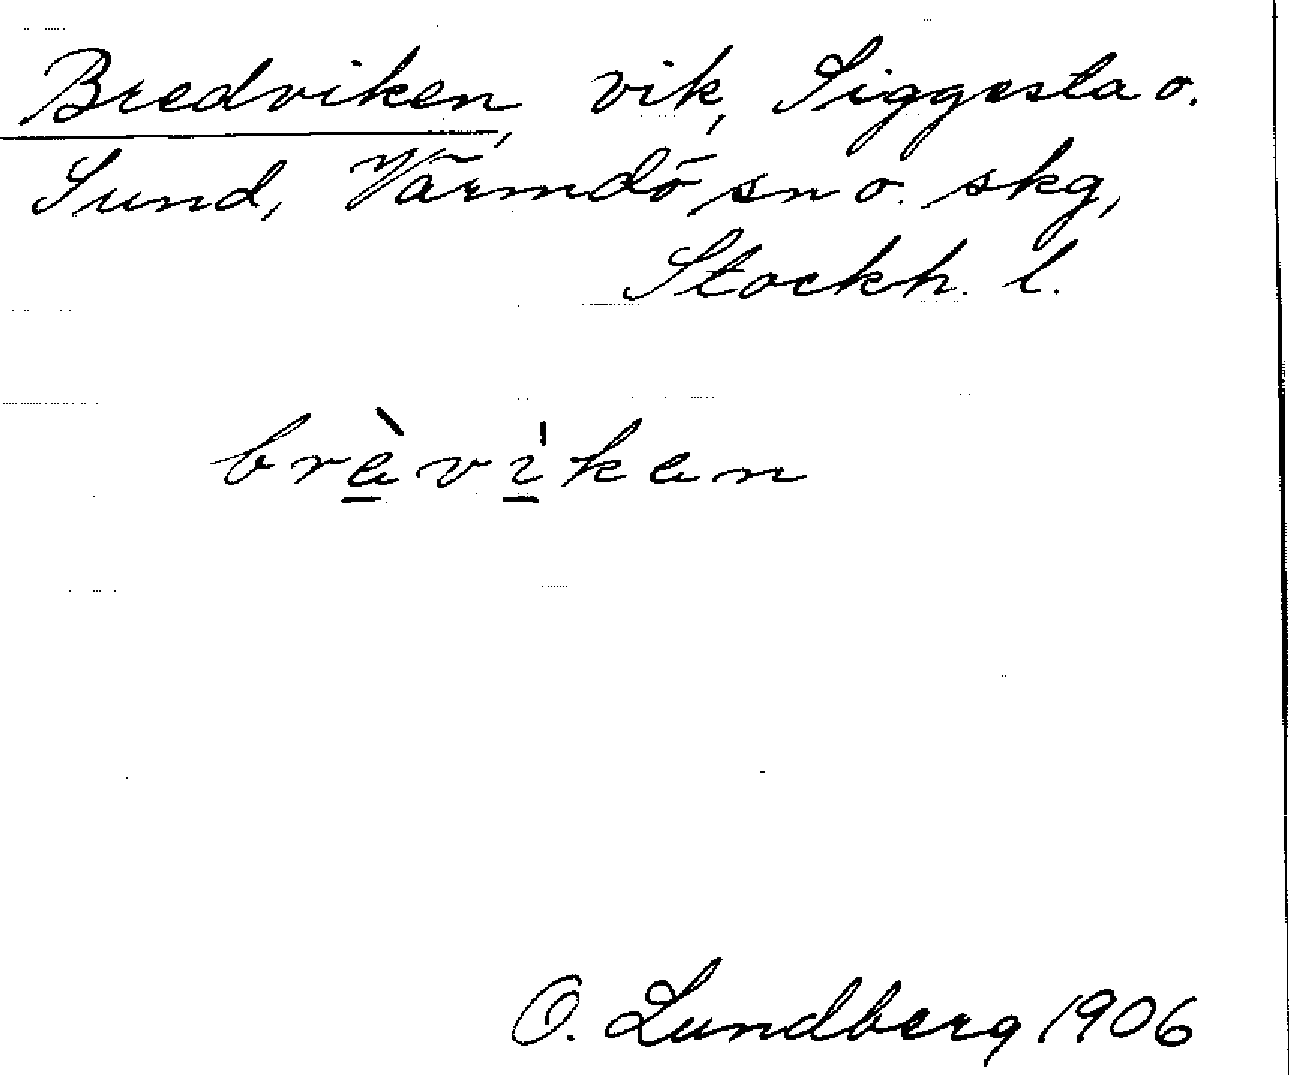 Bredviken, vik, Siggesta o.
Sund, Värmdö sn o. skg,
Stockh. l.
brèviken
O. Lundberg 1906